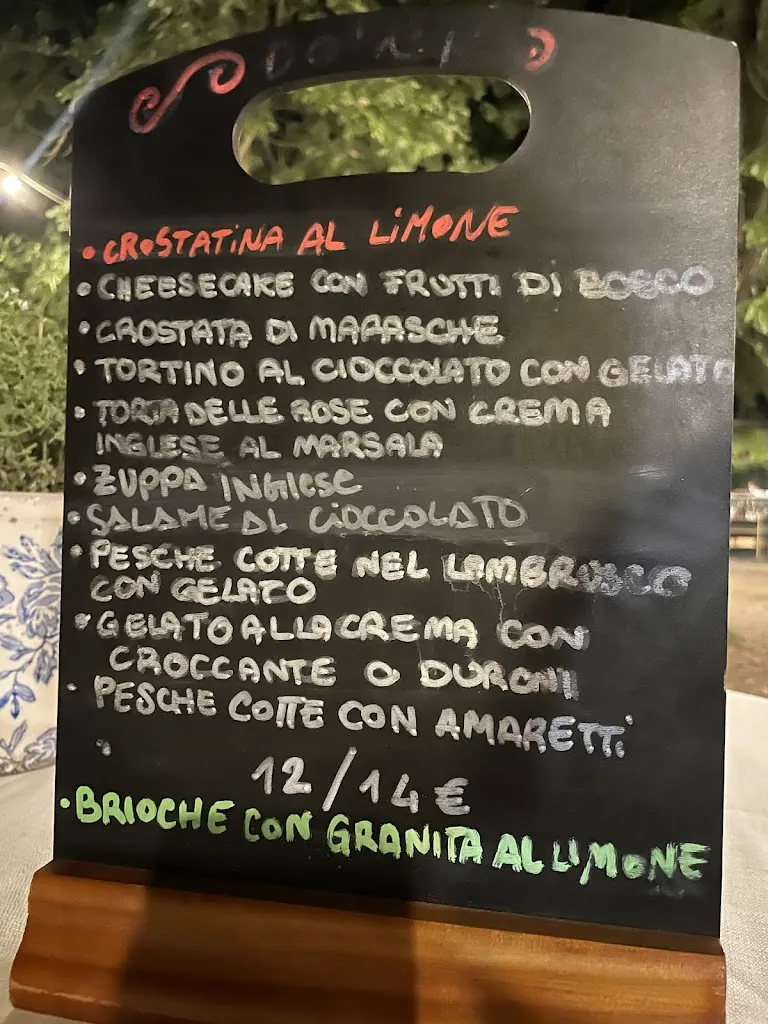 • CROSTATINA AL LIMONE
• CHEESECAKE CON FRUTTI DI BOSCO
• CROSTATA DI MARASCHE
• TORTINO AL CIOCCOLATO CON GELATO
• TORTA DELLE ROSE CON CREMA
INGLESE AL MARSALA
• ZUPPA INGLESE
• SALAME AL CIOCCOLATO
• PESCHE COTTE NEL LAMBRUSCO
CON GELATO
• GELATO ALLA CREMA CON
CROCCANTE O DURONI
• PESCHE COTTE CON AMARETTI
12/14 €
• BRIOCHE CON GRANITA AL LIMONE